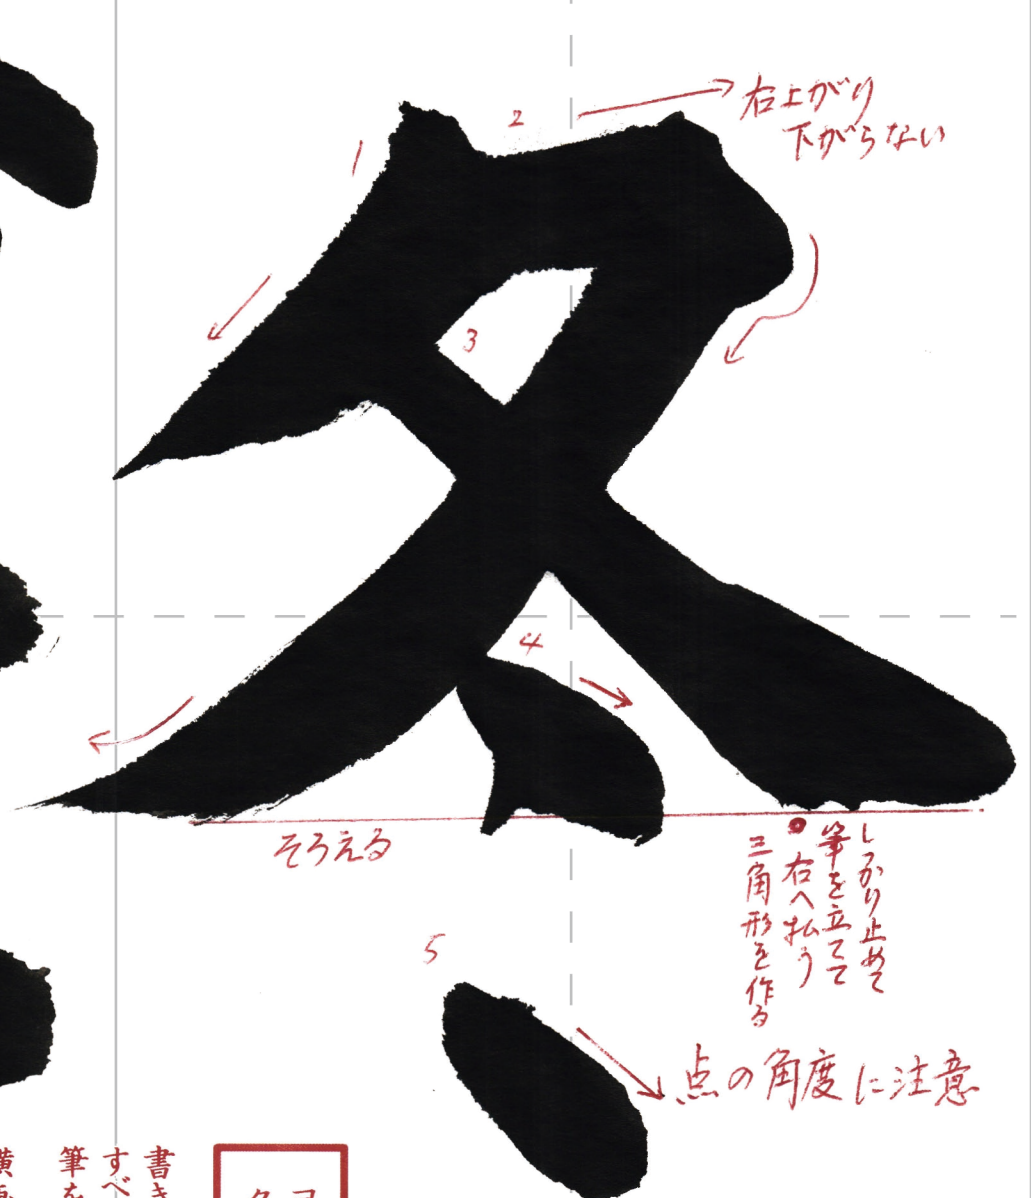 冬
1
2
右上がり
下がらない
3
4
そろえる
しっかり止めて
筆を立てて
右へ払う
三角形を作る
5
点の角度に注意
書き
すべ
筆を